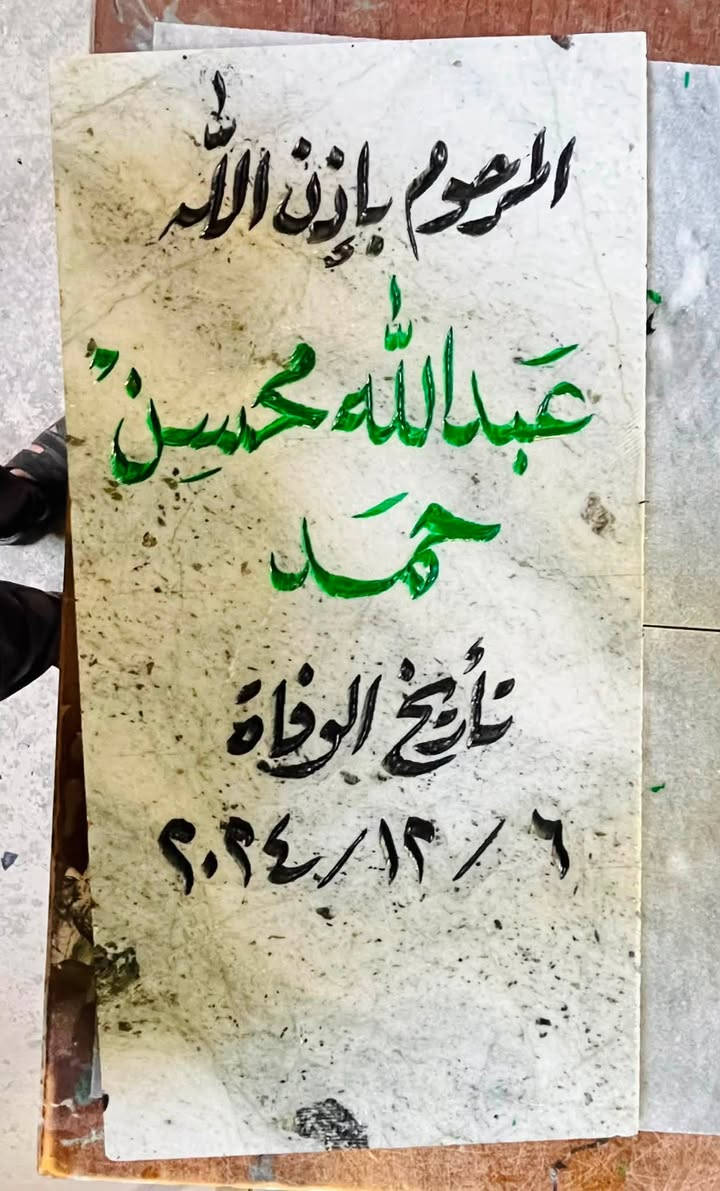 المرحوم بإذن الله
عبدالله محسن
حمد
تأريخ الوفاة
٦ / ١٢ / ٢٠٢٤